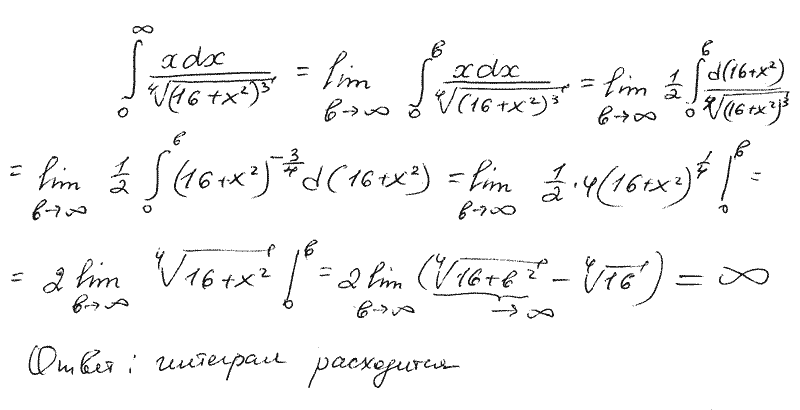 ∫₀^∞ xdx / ⁴√(16+x²)³ = lim_{b→∞} ∫₀^b xdx / ⁴√(16+x²)³ = lim_{b→∞} 1/2 ∫₀^b d(16+x²) / ⁴√(16+x²)³
= lim_{b→∞} 1/2 ∫₀^b (16+x²)^{-3/4} d(16+x²) = lim_{b→∞} 1/2 · 4(16+x²)^{1/4} |₀^b =
= 2 lim_{b→∞} ⁴√(16+x²) |₀^b = 2 lim_{b→∞} (⁴√(16+b²) - ⁴√16) = ∞
→∞
Ответ: интеграл расходится